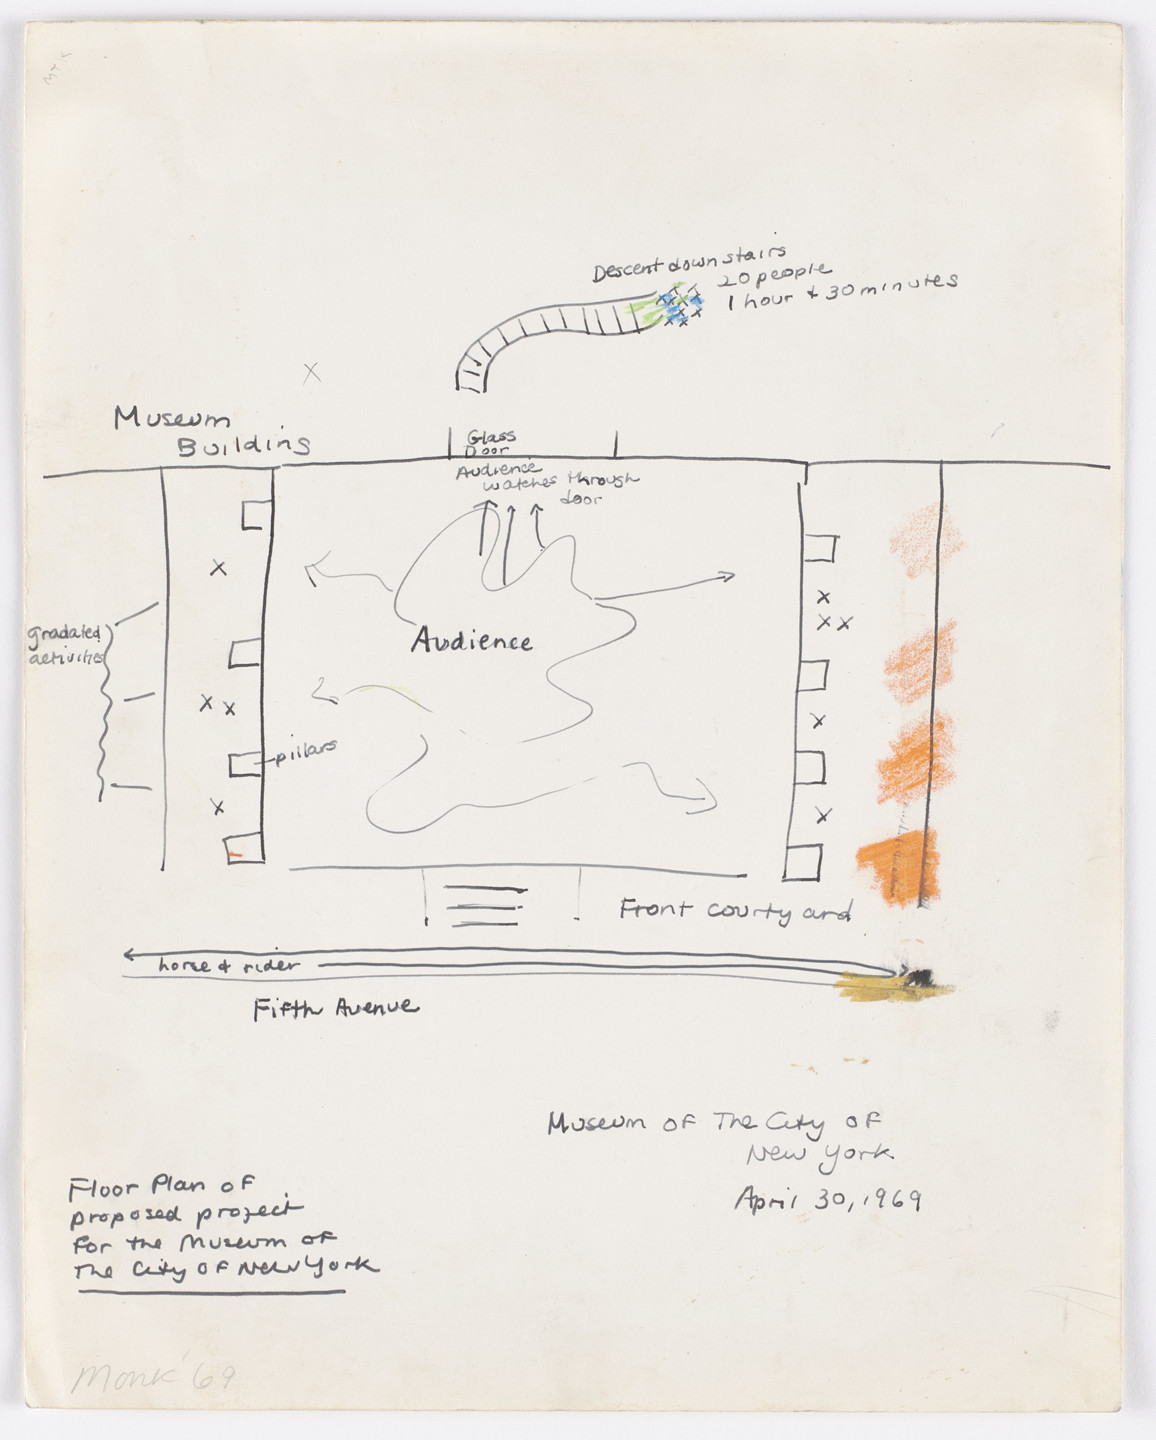 Descent down stairs
20 people
1 hour + 30 minutes
Museum
Building
Glass
Door
Audience
watches through
door
gradated
activities
Audience
pillars
Front courtyard
horse & rider
Fifth Avenue
Museum of The City of
New York
April 30, 1969
Floor Plan of
proposed project
for the Museum of
The City of New York
Monk '69